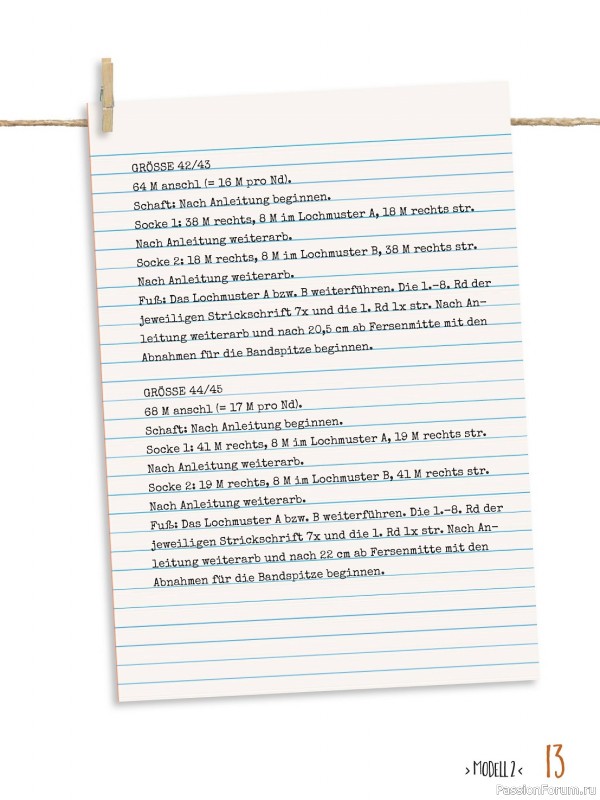 GRÖSSE 42/43
64 M anschl (= 16 M pro Nd).
Schaft: Nach Anleitung beginnen.
Socke 1: 38 M rechts, 8 M im Lochmuster A, 18 M rechts str.
Nach Anleitung weiterarb.
Socke 2: 18 M rechts, 8 M im Lochmuster B, 38 M rechts str.
Nach Anleitung weiterarb.
Fuß: Das Lochmuster A bzw. B weiterführen. Die 1.–8. Rd der
jeweiligen Strickschrift 7x und die 1. Rd 1x str. Nach An-
leitung weiterarb und nach 20,5 cm ab Fersenmitte mit den
Abnahmen für die Bandspitze beginnen.
GRÖSSE 44/45
68 M anschl (= 17 M pro Nd).
Schaft: Nach Anleitung beginnen.
Socke 1: 41 M rechts, 8 M im Lochmuster A, 19 M rechts str.
Nach Anleitung weiterarb.
Socke 2: 19 M rechts, 8 M im Lochmuster B, 41 M rechts str.
Nach Anleitung weiterarb.
Fuß: Das Lochmuster A bzw. B weiterführen. Die 1.–8. Rd der
jeweiligen Strickschrift 7x und die 1. Rd 1x str. Nach An-
leitung weiterarb und nach 22 cm ab Fersenmitte mit den
Abnahmen für die Bandspitze beginnen.
> MODELL 2 < 13
PassionForum.ru